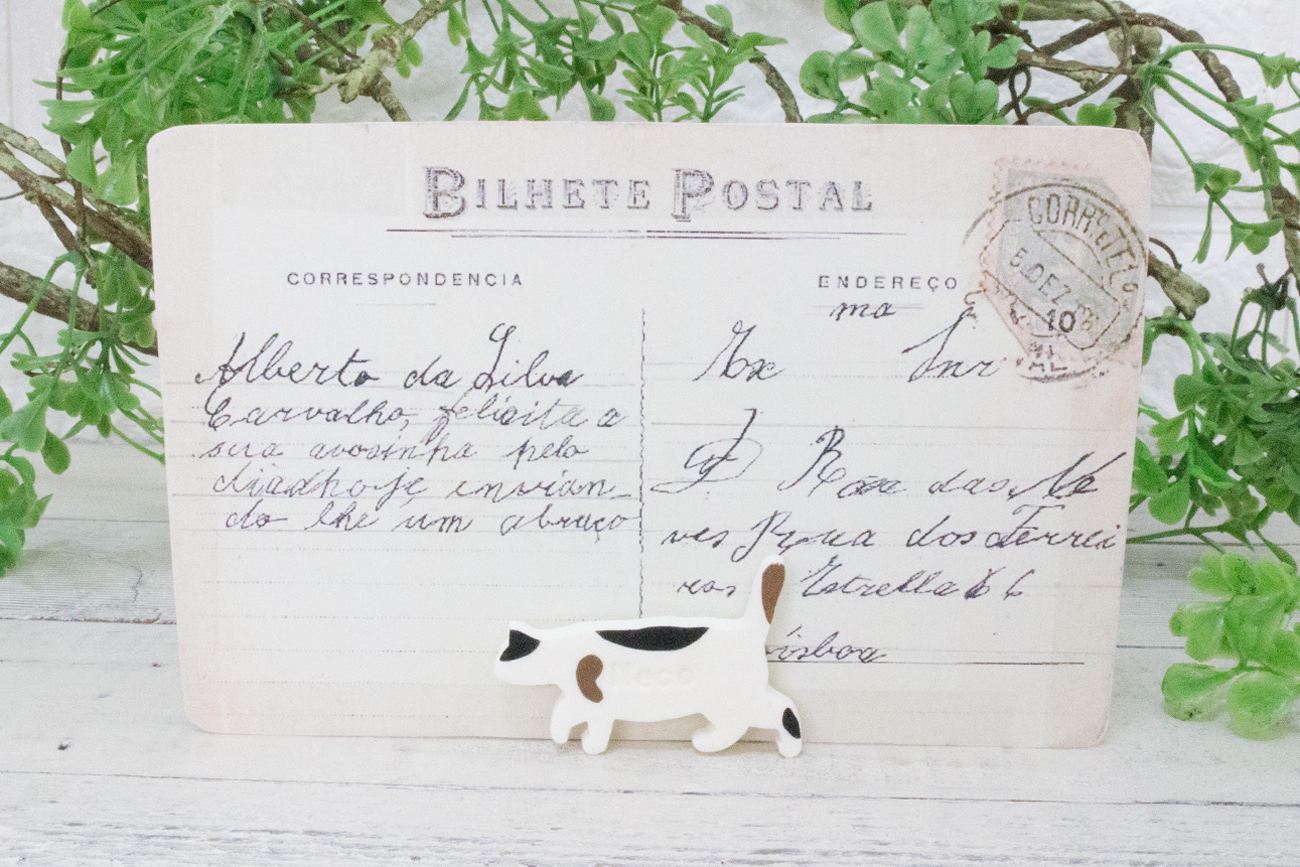 BILHETE POSTAL
CORRESPONDENCIA
Alberto da Silva
Carvalho, felicita a
sua avosinha pelo
diadhoje envian_
do lhe um abraço
ENDEREÇO
ma
Ex Snr
D Rosa das Ne
ves Rua dos Ferrei
ros Estrella 66
isboa
5.DEZ
10